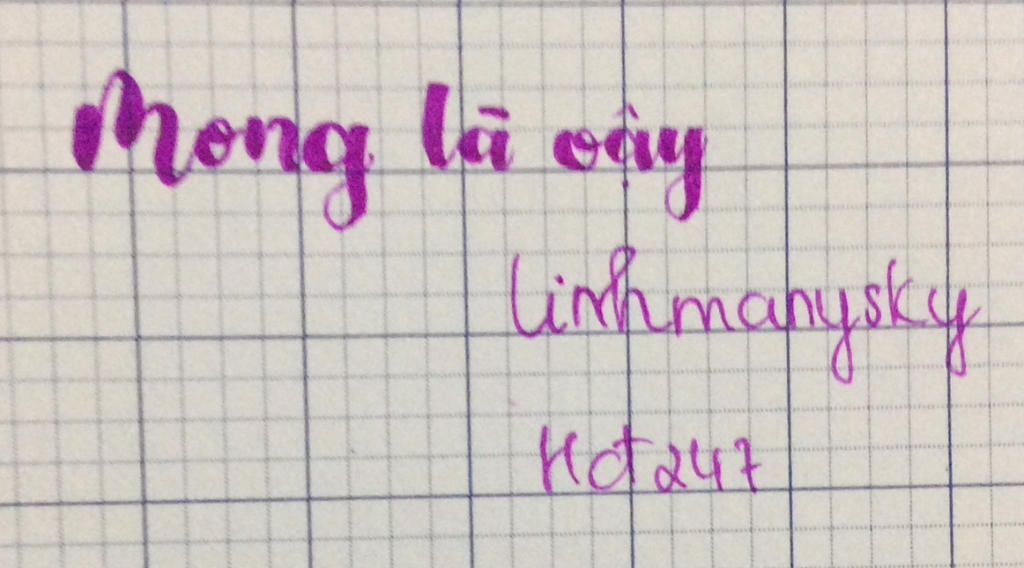 Mong là vậy
linhmanysky
Hđ247